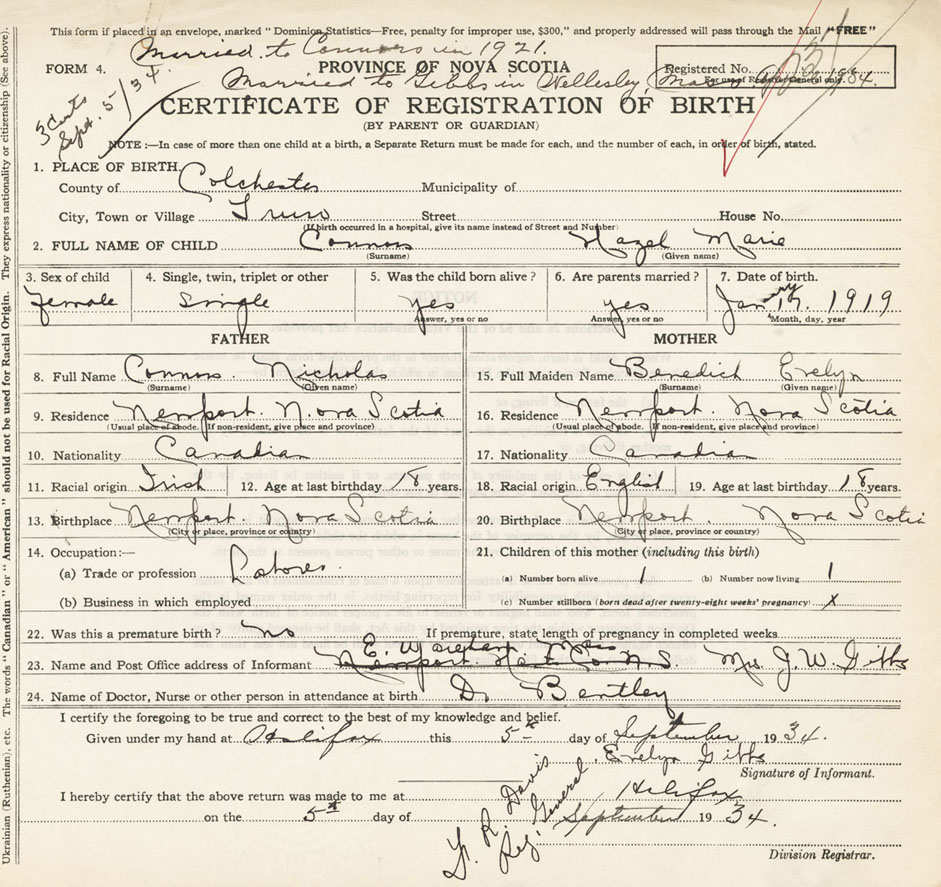 This form if placed in an envelope, marked "Dominion Statistics—Free, penalty for improper use, $300," and properly addressed will pass through the Mail "FREE"
Married to Connors in 1921.
FORM 4. PROVINCE OF NOVA SCOTIA Registered No.
For use of Registrar General only.
Married to Gibbs in Wellesley, Mass. 1934.
3 Certs Sept. 5/34.
CERTIFICATE OF REGISTRATION OF BIRTH
(BY PARENT OR GUARDIAN)
NOTE :—In case of more than one child at a birth, a Separate Return must be made for each, and the number of each, in order of birth, stated.
1. PLACE OF BIRTH
County of Colchester Municipality of
City, Town or Village Truro Street House No.
(If birth occurred in a hospital, give its name instead of Street and Number)
2. FULL NAME OF CHILD Connors Hazel Marie
(Surname) (Given name)
3. Sex of child 4. Single, twin, triplet or other 5. Was the child born alive ? 6. Are parents married ? 7. Date of birth.
Female Single yes yes Jan'ry 17, 1919
Answer, yes or no Answer, yes or no Month, day, year
FATHER MOTHER
8. Full Name Connors. Nicholas 15. Full Maiden Name Benedict Evelyn
(Surname) (Given name) (Surname) (Given name)
9. Residence Newport. Nova Scotia 16. Residence Newport. Nova Scotia
(Usual place of abode. If non-resident, give place and province) (Usual place of abode. If non-resident, give place and province)
10. Nationality Canadian 17. Nationality Canadian
11. Racial origin Irish 12. Age at last birthday 18 years. 18. Racial origin English 19. Age at last birthday 18 years.
13. Birthplace Newport. Nova Scotia 20. Birthplace Newport. Nova Scotia
(City or place, province or country) (City or place, province or country)
14. Occupation:— 21. Children of this mother (including this birth)
(a) Trade or profession Laborer. (a) Number born alive 1 (b) Number now living 1
(b) Business in which employed (c) Number stillborn (born dead after twenty-eight weeks' pregnancy) x
22. Was this a premature birth ? no If premature, state length of pregnancy in completed weeks
E. Wareham Mass
23. Name and Post Office address of Informant Newport. Hants Co. N.S. Mrs. J. W. Gibbs
24. Name of Doctor, Nurse or other person in attendance at birth Dr. Bentley
I certify the foregoing to be true and correct to the best of my knowledge and belief.
Given under my hand at Halifax this 5th day of September 1934.
Evelyn Gibbs
Signature of Informant.
I hereby certify that the above return was made to me at Halifax
on the 5th day of September 1934.
Davis
Reg. General
Division Registrar.
Ukrainian (Ruthenian), etc. The words "Canadian" or "American" should not be used for Racial Origin. They express nationality or citizenship (See above).